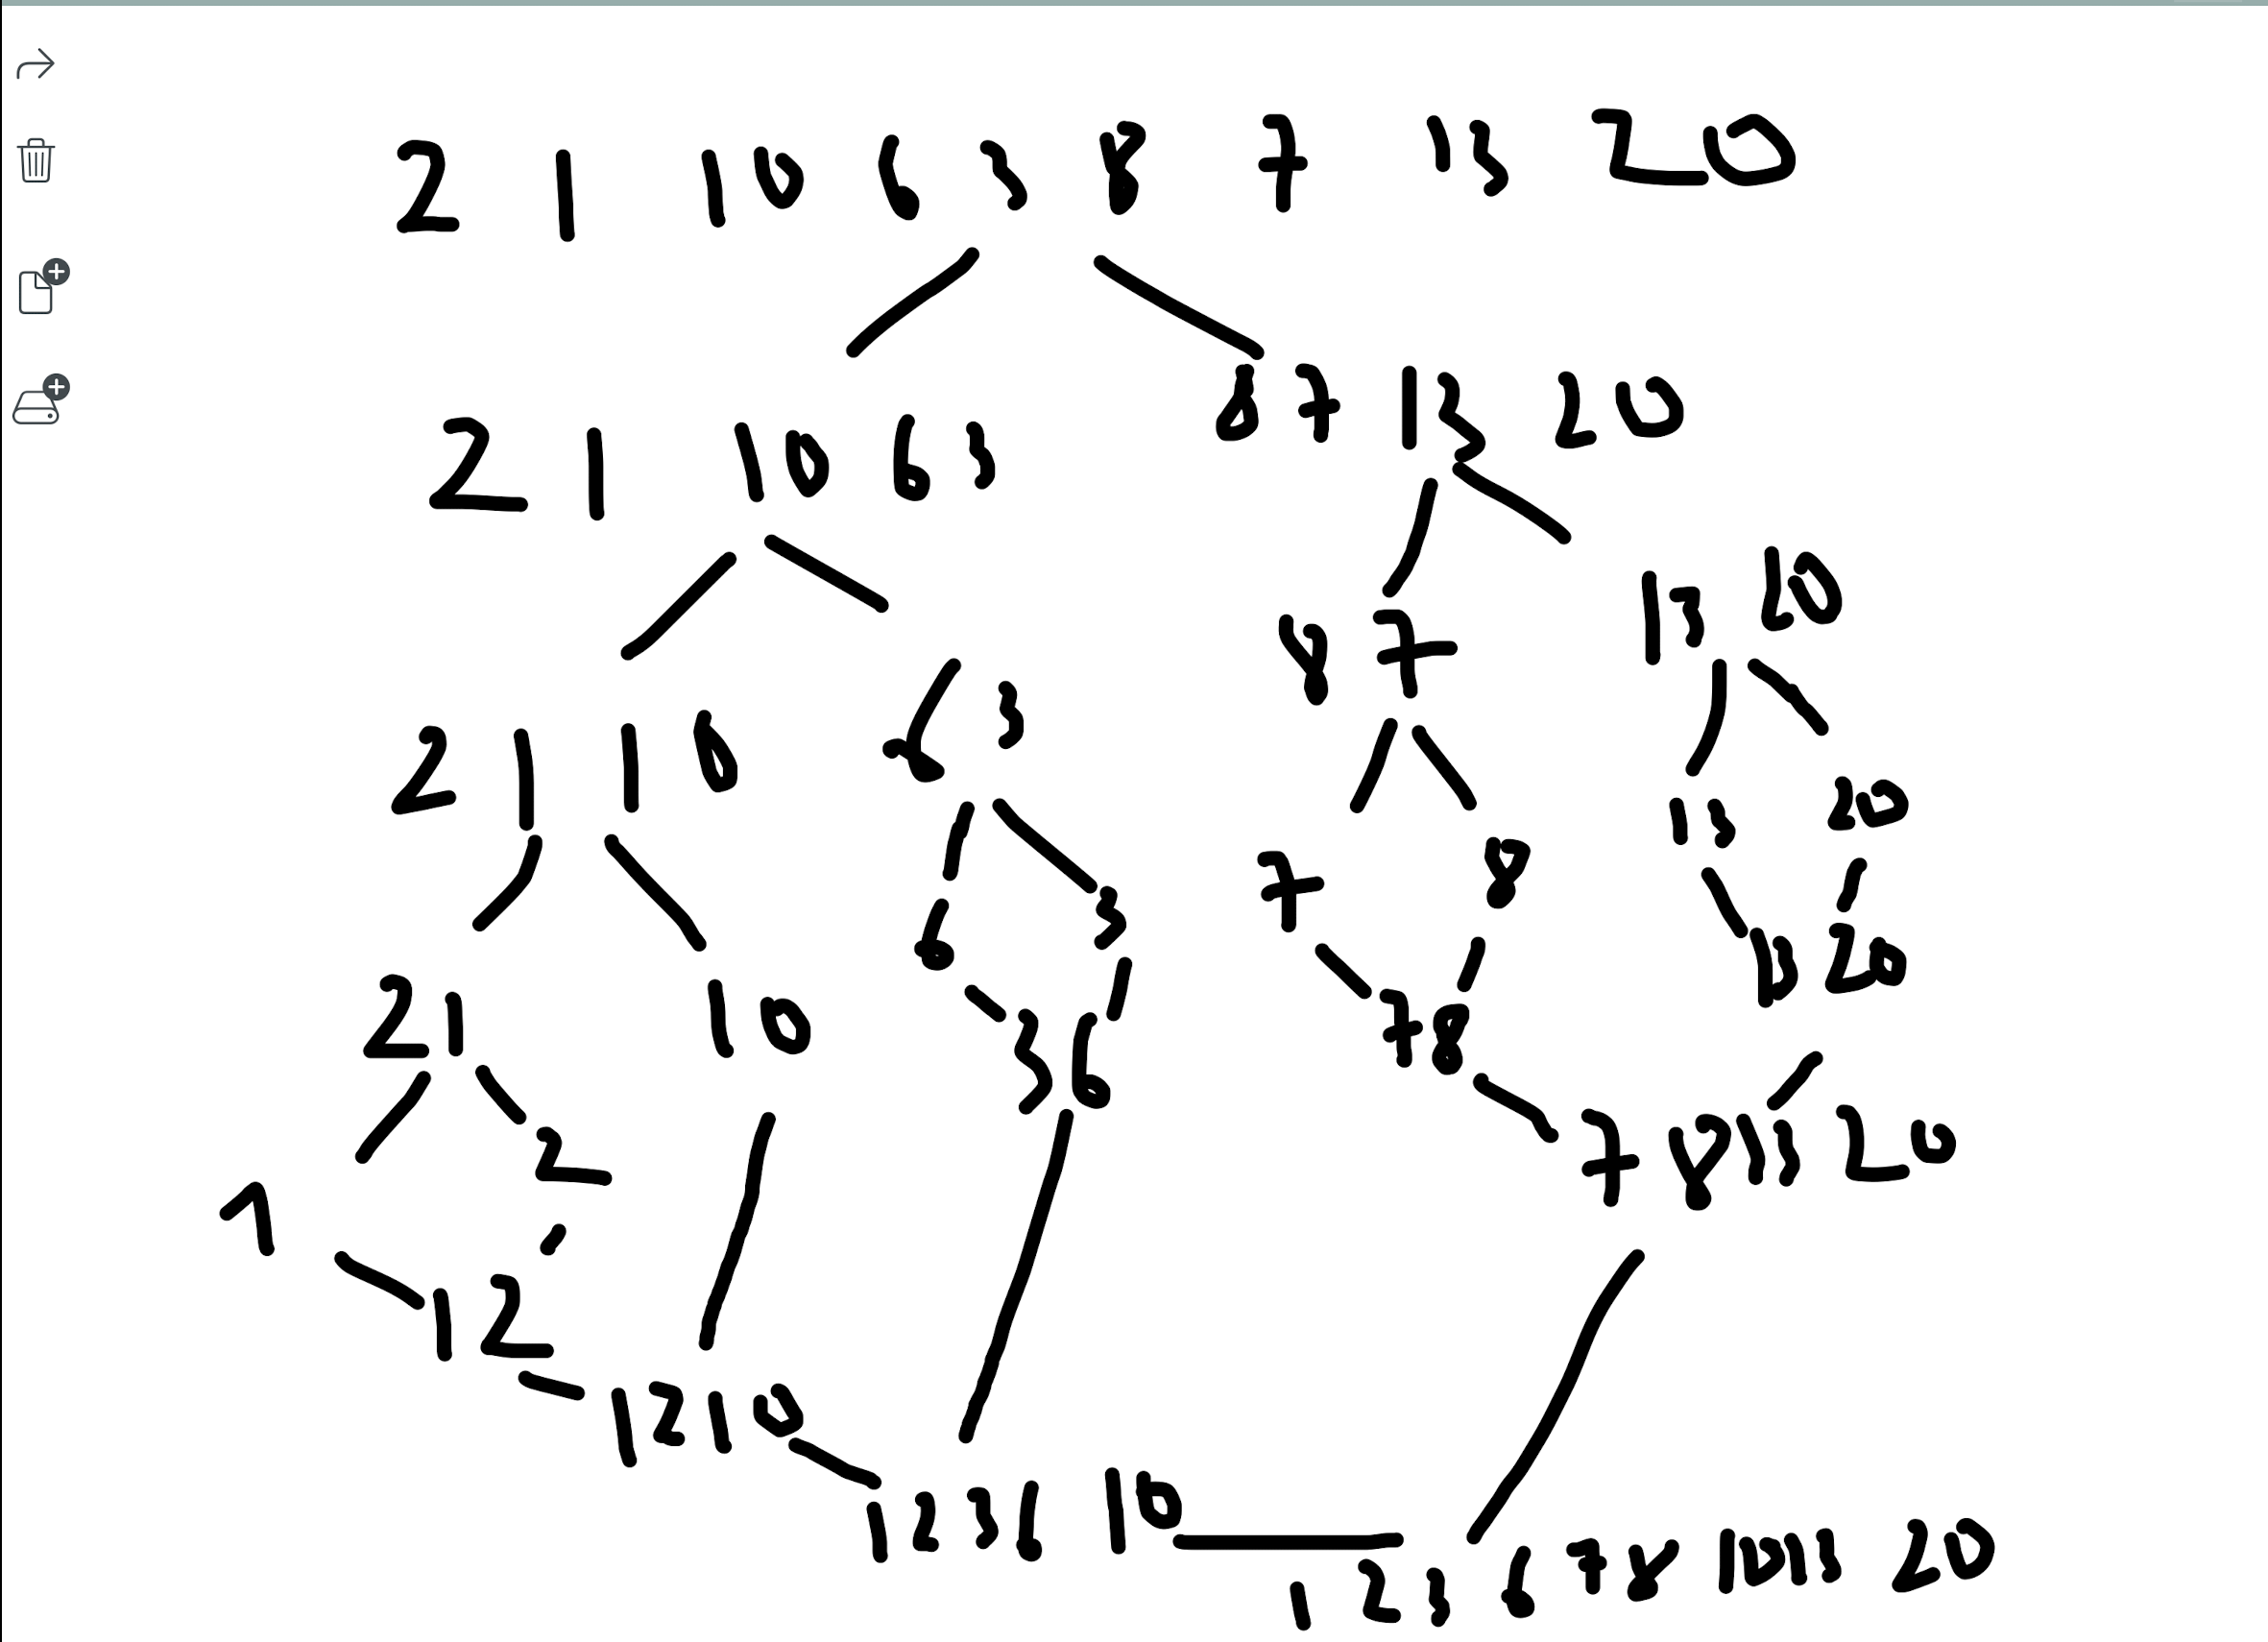 2 1 10 6 3 8 7 13 20
2 1 10 6 3 8 7 13 20
2 1 10 6 3 8 7 13 20
2 1 10 6 3 7 8 13 20
1 2 3 6 7 8 13 20
1 2 7 8 13 20
1 2 10
1 2 3 6 10
1 2 3 6 7 8 10 13 20